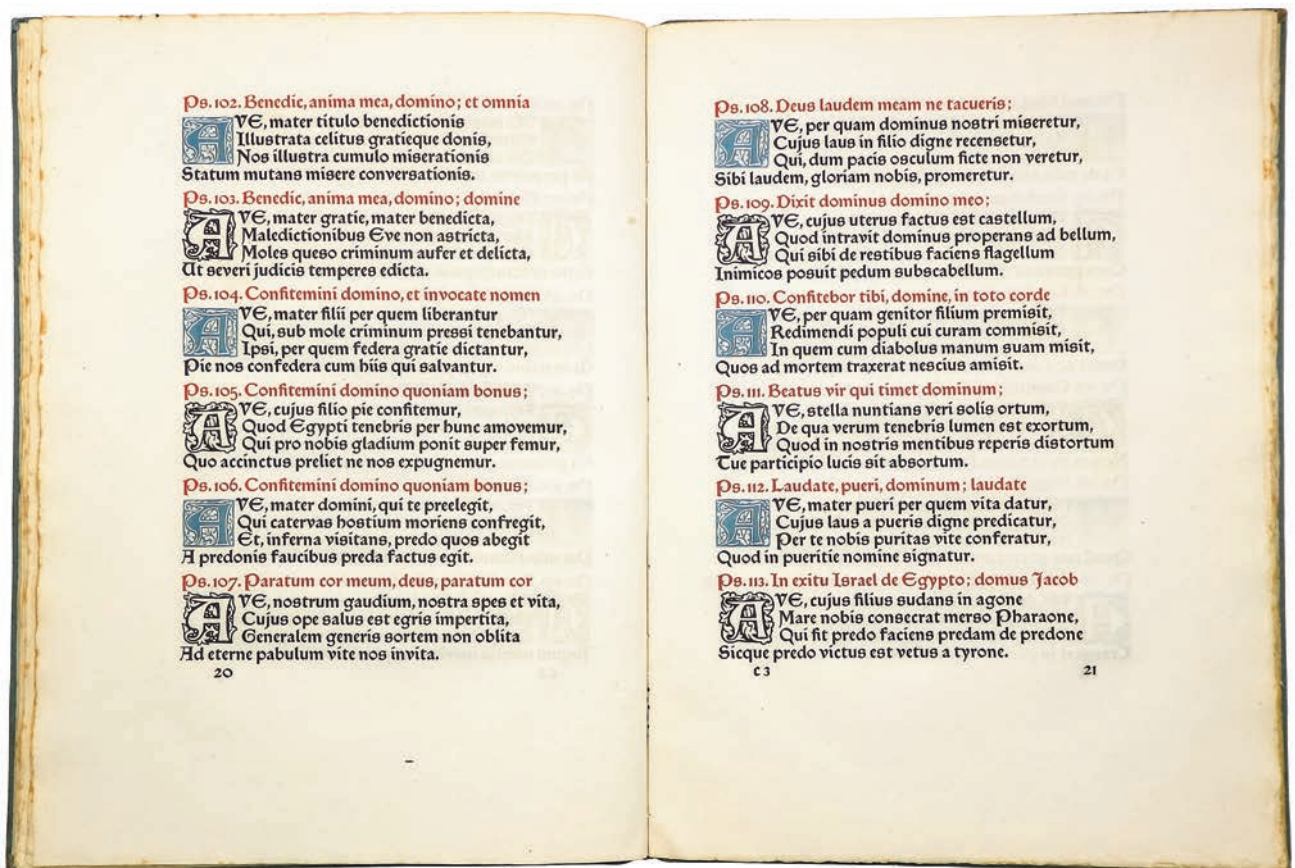 Ps. 102. Benedic, anima mea, domino; et omnia
AVE, mater titulo benedictionis
Illustrata celitus gratieque donis,
Nos illustra cumulo miserationis
Statum mutans misere conversationis.
Ps. 103. Benedic, anima mea, domino; domine
AVE, mater gratie, mater benedicta,
Maledictionibus Eve non astricta,
Moles queso criminum aufer et delicta,
Ut severi judicis temperes edicta.
Ps. 104. Confitemini domino, et invocate nomen
AVE, mater filii per quem liberantur
Qui, sub mole criminum pressi tenebantur,
Ipsi, per quem federa gratie dictantur,
Pie nos confedera cum hiis qui salvantur.
Ps. 105. Confitemini domino quoniam bonus;
AVE, cujus filio pie confitemur,
Quod Egypti tenebris per hunc amovemur,
Qui pro nobis gladium ponit super femur,
Quo accinctus preliet ne nos expugnemur.
Ps. 106. Confitemini domino quoniam bonus;
AVE, mater domini, qui te preelegit,
Qui catervas hostium moriens confregit,
Et, inferna visitans, predo quos abegit
A predonis faucibus preda factus egit.
Ps. 107. Paratum cor meum, deus, paratum cor
AVE, nostrum gaudium, nostra spes et vita,
Cujus ope salus est egris impertita,
Generalem generis sortem non oblita
Ad eterne pabulum vite nos invita.
20
Ps. 108. Deus laudem meam ne tacueris;
AVE, per quam dominus nostri miseretur,
Cujus laus in filio digne recensetur,
Qui, dum pacis osculum ficte non veretur,
Sibi laudem, gloriam nobis, promeretur.
Ps. 109. Dixit dominus domino meo;
AVE, cujus uterus factus est castellum,
Quod intravit dominus properans ad bellum,
Qui sibi de restibus faciens flagellum
Inimicos posuit pedum subscabellum.
Ps. 110. Confitebor tibi, domine, in toto corde
AVE, per quam genitor filium premisit,
Redimendi populi cui curam commisit,
In quem cum diabolus manum suam misit,
Quos ad mortem traxerat nescius amisit.
Ps. 111. Beatus vir qui timet dominum;
AVE, stella nuntians veri solis ortum,
De qua verum tenebris lumen est exortum,
Quod in nostris mentibus reperis distortum
Tue participio lucis sit absortum.
Ps. 112. Laudate, pueri, dominum; laudate
AVE, mater pueri per quem vita datur,
Cujus laus a pueris digne predicatur,
Per te nobis puritas vite conferatur,
Quod in pueritie nomine signatur.
Ps. 113. In exitu Israel de Egypto; domus Jacob
AVE, cujus filius sudans in agone
Mare nobis consecrat merso Pharaone,
Qui fit predo faciens predam de predone
Sicque predo victus est vetus a tyrone.
c 3 21